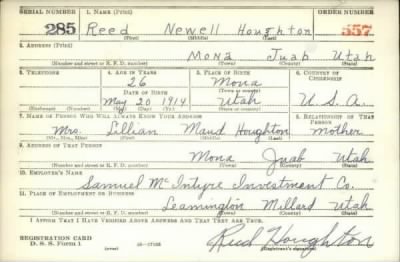 SERIAL NUMBER 1. NAME (Print) ORDER NUMBER
285 Reed Newell Houghton 557
(First) (Middle) (Last)
2. ADDRESS (Print)
Mona Juab Utah
(Number and street or R. F. D. number) (Town) (County) (State)
3. TELEPHONE 4. AGE IN YEARS 5. PLACE OF BIRTH 6. COUNTRY OF CITIZENSHIP
26 Mona
DATE OF BIRTH (Town or county)
May 20 1914 Utah U. S. A.
(Exchange) (Number) (Mo.) (Day) (Yr.) (State or country)
7. NAME OF PERSON WHO WILL ALWAYS KNOW YOUR ADDRESS 8. RELATIONSHIP OF THAT PERSON
Mrs. Lillian Maud Houghton Mother
(Mr., Mrs., Miss) (First) (Middle) (Last)
9. ADDRESS OF THAT PERSON
Mona Juab Utah
(Number and street or R. F. D. number) (Town) (County) (State)
10. EMPLOYER'S NAME
Samuel McIntyre Investment Co.
11. PLACE OF EMPLOYMENT OR BUSINESS
Leamington Millard Utah
(Number and street or R. F. D. number) (Town) (County) (State)
I AFFIRM THAT I HAVE VERIFIED ABOVE ANSWERS AND THAT THEY ARE TRUE.
REGISTRATION CARD
D. S. S. Form 1 Reed Houghton
(Registrant's signature)